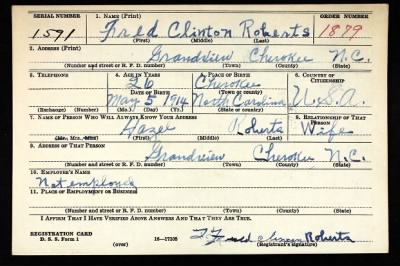 SERIAL NUMBER 1. NAME (Print) ORDER NUMBER
1591 Fred Clinton Roberts 1879
(First) (Middle) (Last)
2. ADDRESS (Print)
Grandview Cherokee N.C.
(Number and street or R. F. D. number) (Town) (County) (State)
3. TELEPHONE 4. AGE IN YEARS 5. PLACE OF BIRTH 6. COUNTRY OF CITIZENSHIP
26 Cherokee
DATE OF BIRTH (Town or county)
May 5 1914 North Carolina U.S.A.
(Exchange) (Number) (Mo.) (Day) (Yr.) (State or country)
7. NAME OF PERSON WHO WILL ALWAYS KNOW YOUR ADDRESS 8. RELATIONSHIP OF THAT PERSON
Hazel Roberts Wife
(Mr., Mrs., Miss) (First) (Middle) (Last)
9. ADDRESS OF THAT PERSON
Grandview Cherokee N.C.
(Number and street or R. F. D. number) (Town) (County) (State)
10. EMPLOYER'S NAME
Not employed
11. PLACE OF EMPLOYMENT OR BUSINESS
(Number and street or R. F. D. number) (Town) (County) (State)
I AFFIRM THAT I HAVE VERIFIED ABOVE ANSWERS AND THAT THEY ARE TRUE.
REGISTRATION CARD
D. S. S. Form 1 (over) 16—17105 Fred Clinton Roberts
(Registrant's signature)